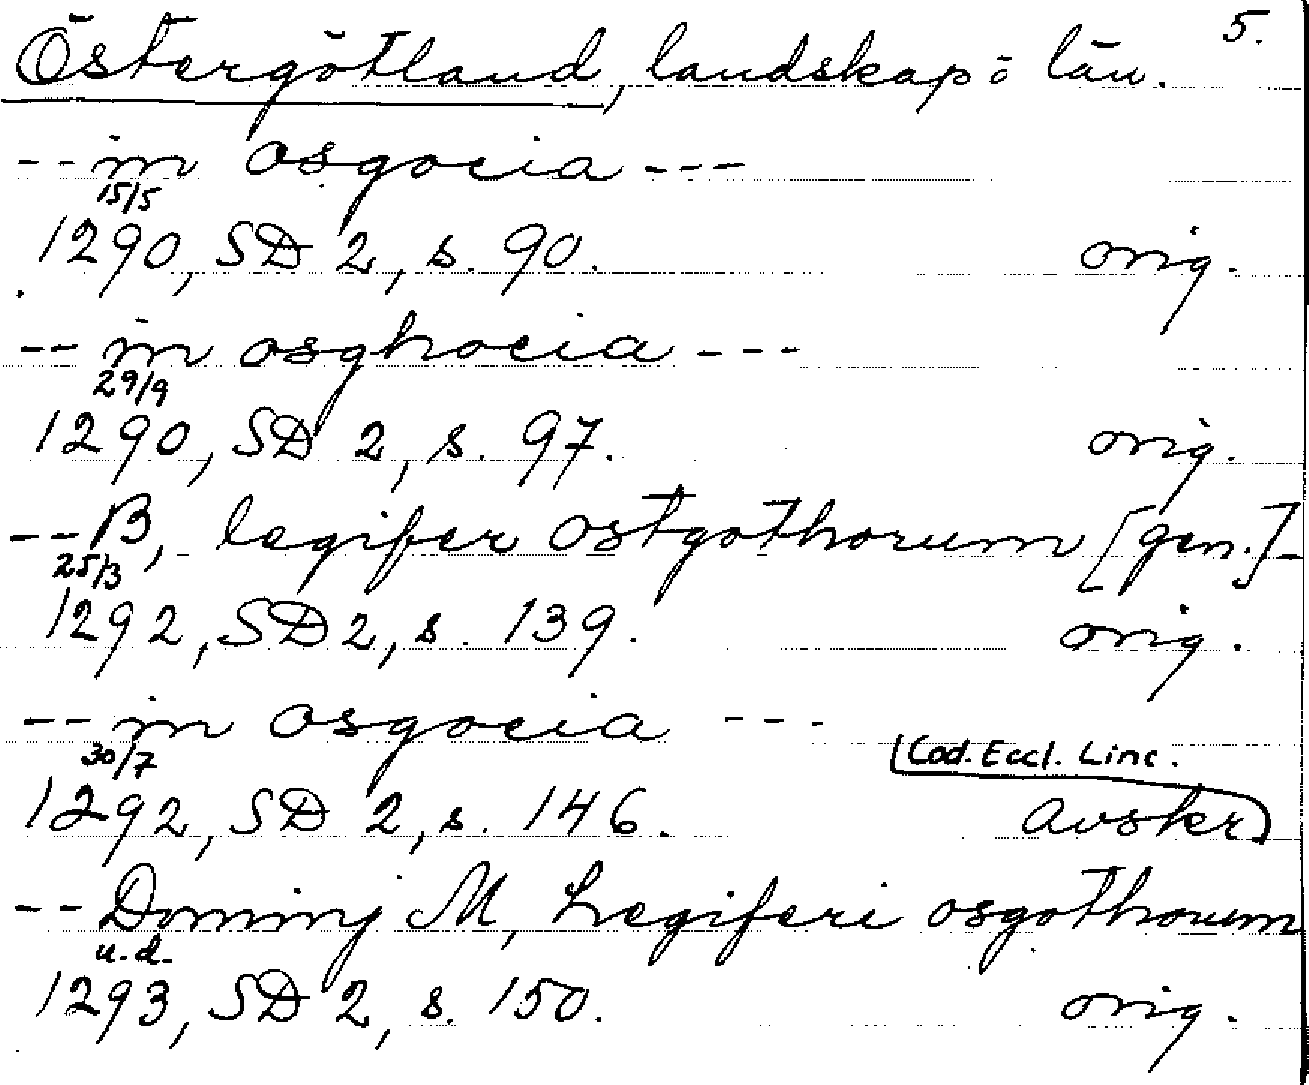 5.
Östergötland, landskap o län.
-- in osgocia ---
15/5
1290, SD 2, s. 90. orig.
-- in osghocia ---
29/9
1290, SD 2, s. 97. orig.
-- B, legifer ostgothorum [gen.] -
25/3
1292, SD 2, s. 139. orig.
-- in osgocia ---
30/7 Cod. Eccl. Linc.
1292, SD 2, s. 146. avskr
-- Dominj M, Legiferi osgothorum
u.d.
1293, SD 2, s. 150. orig.